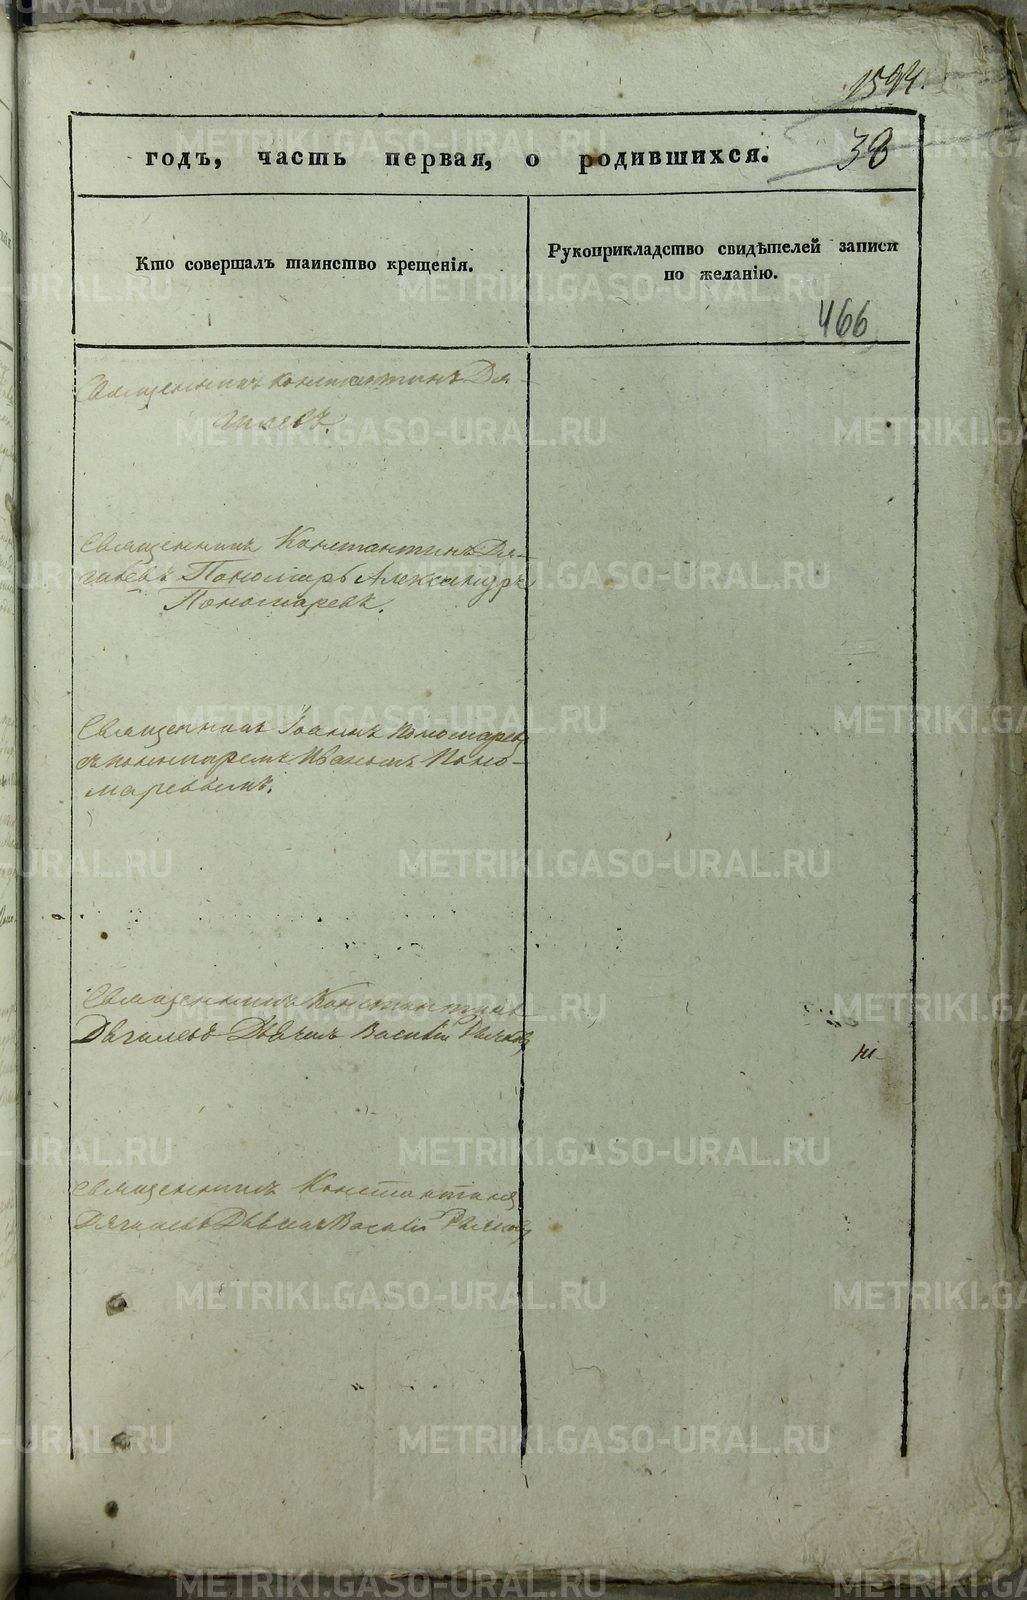 1594.
годъ, часть первая, о родившихся.
38
Кто совершалъ таинство крещенія.
Рукоприкладство свидѣтелей записи
по желанію.
466
Священникъ Константинъ Дя-
гилевъ.
Священникъ Константинъ Дя-
гилевъ Пономарь Александръ
Пономаревъ.
Священникъ Іоаннъ Пономаревъ
съ пономаремъ Иваномъ Поно-
маревымъ.
Священникъ Константинъ
Дягилевъ Дьячекъ Василій
Священникъ Константинъ
Дягилевъ Дьячекъ Василій
METRIKI.GASO-URAL.RU